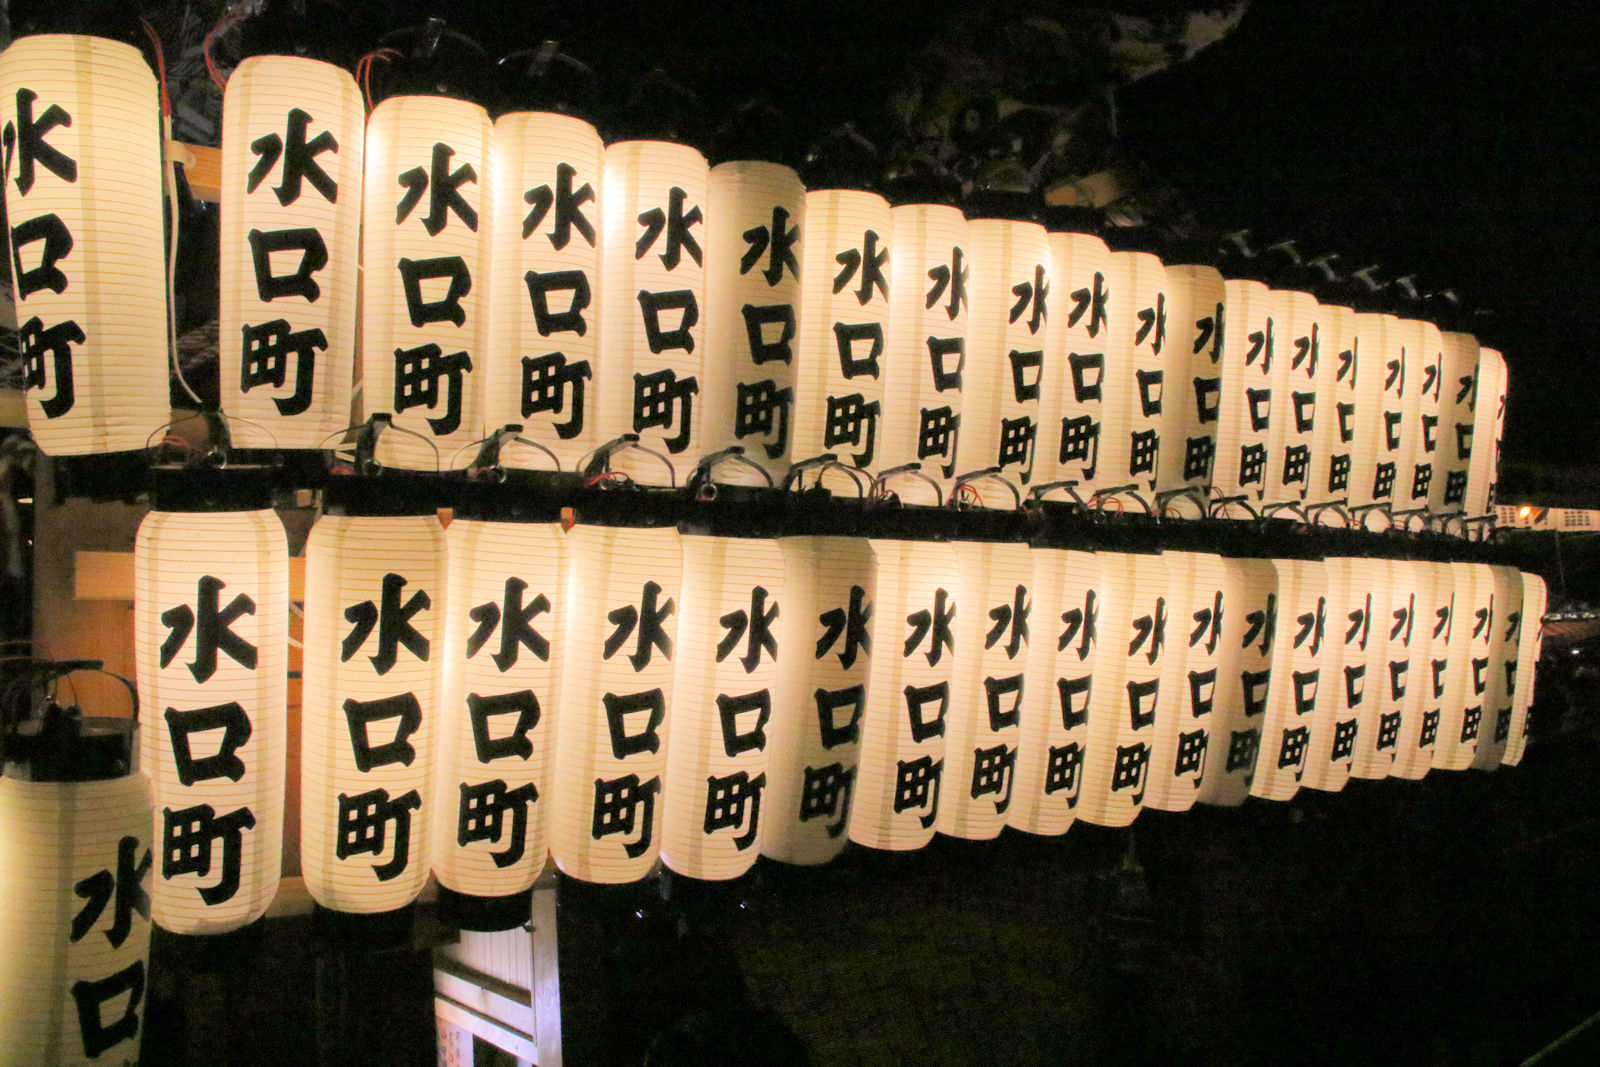 水口町
水口町
水口町
水口町
水口町
水口町
水口町
水口町
水口町
水口町
水口町
水口町
水口町
水口町
水口町
水口町
水口町
水口町
水口町
水口町
水口町
水口町
水口町
水口町
水口町
水口町
水口町
水口町
水口町
水口町
水口町
水口町
水口町
水口町
水口町
水口町
水口